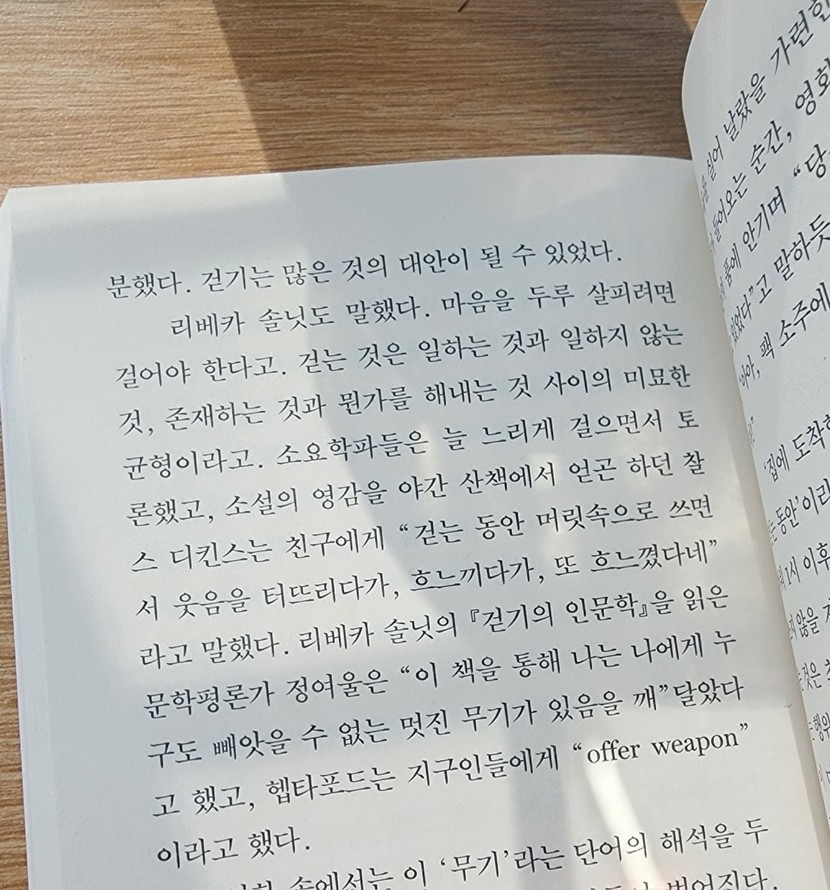 분했다. 걷기는 많은 것의 대안이 될 수 있었다.
리베카 솔닛도 말했다. 마음을 두루 살피려면
걸어야 한다고. 걷는 것은 일하는 것과 일하지 않는
것, 존재하는 것과 뭔가를 해내는 것 사이의 미묘한
균형이라고. 소요학파들은 늘 느리게 걸으면서 토
론했고, 소설의 영감을 야간 산책에서 얻곤 하던 찰
스 디킨스는 친구에게 “걷는 동안 머릿속으로 쓰면
서 웃음을 터뜨리다가, 흐느끼다가, 또 흐느꼈다네”
라고 말했다. 리베카 솔닛의 『걷기의 인문학』을 읽은
문학평론가 정여울은 “이 책을 통해 나는 나에게 누
구도 빼앗을 수 없는 멋진 무기가 있음을 깨”달았다
고 했고, 헵타포드는 지구인들에게 “offer weapon”
이라고 했다.
속에서는 이 ‘무기’라는 단어의 해석을 두
벌어진다.
실어 날랐을 가련한
들어오는 순간, 영화
품에 안기며 “당
있었다”고 말하듯
팩 소주에
‘집에 도착
동안’이라
1시 이후
않을
것은